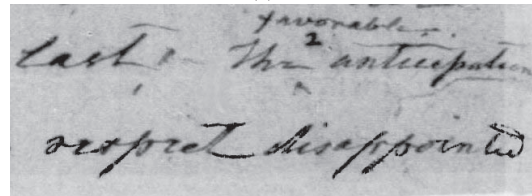 favorable
last – The 2 anticipation
respect disappointed